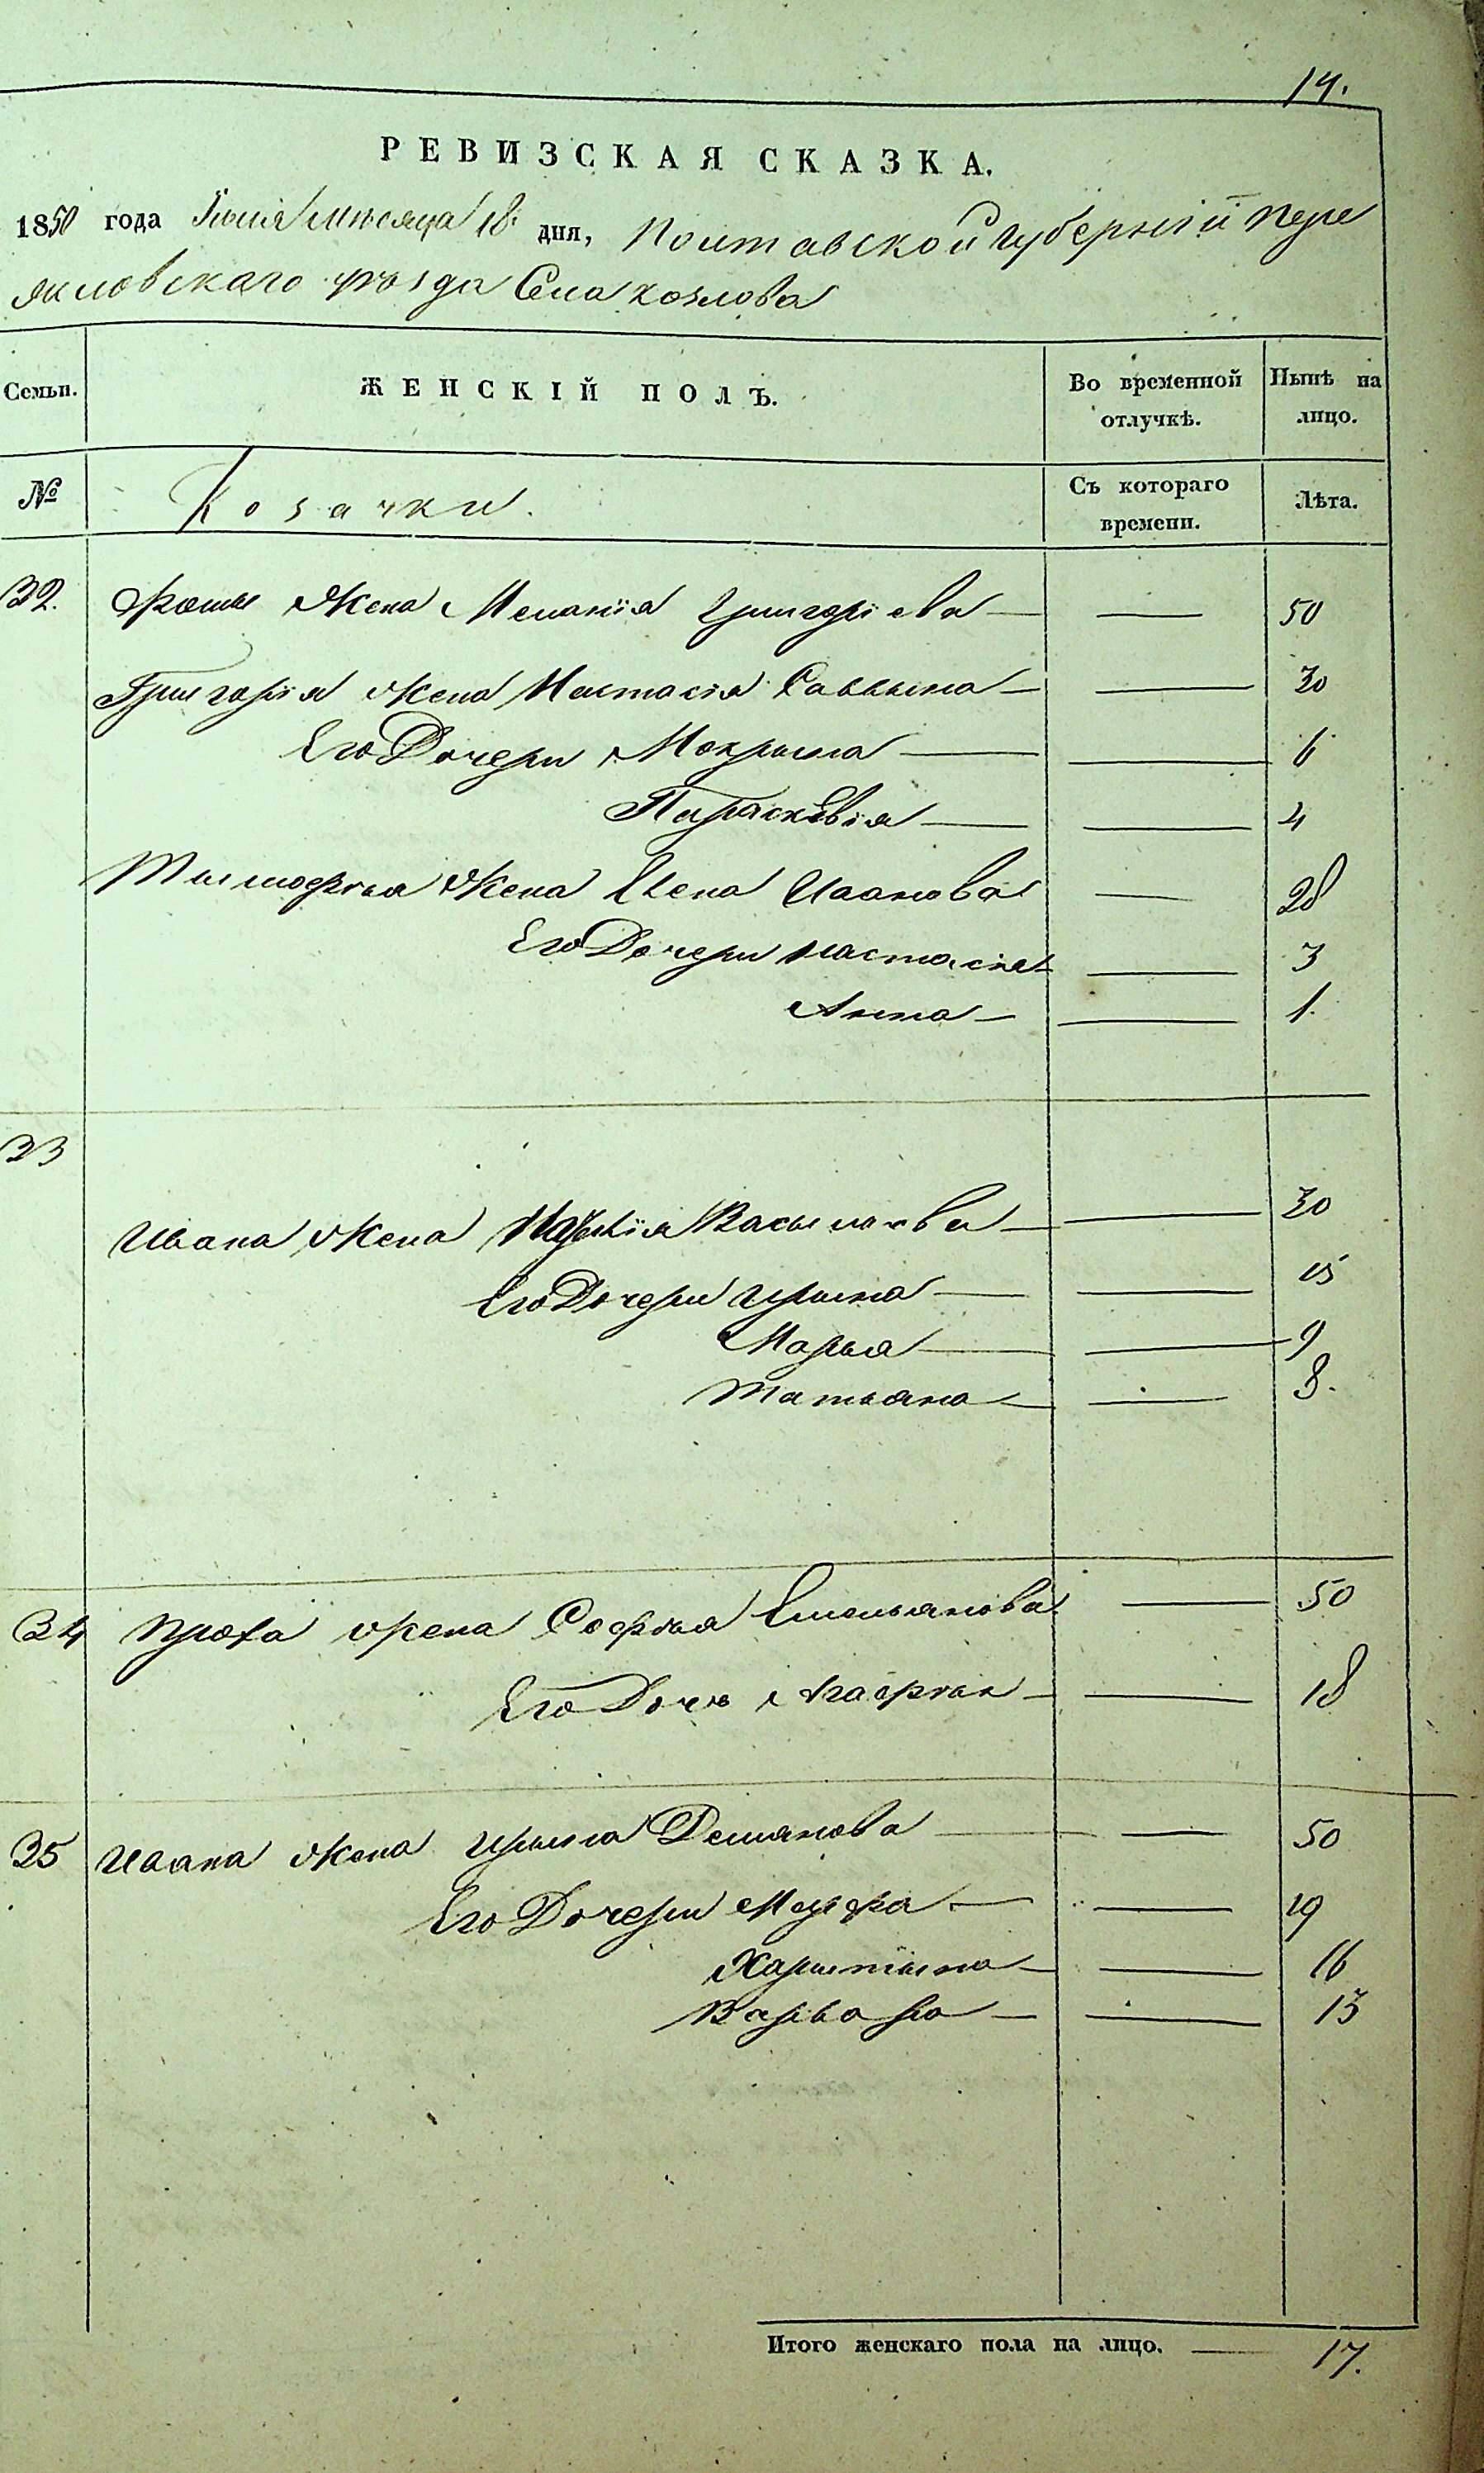 14.
РЕВИЗСКАЯ СКАЗКА.
1850 года Іюня мѣсяца 18. дня, Полтавской губерніи Пере
яславскаго уѣзда Села Козлова
Семьи. ЖЕНСКІЙ ПОЛЪ. Во временной отлучкѣ. Нынѣ на лицо.
№ Козачки. Съ котораго времени. Лѣта.
32. Фомы Жена Меланія Григоріева — — 50
Григорія Жена Настасія Саввина — — 30
Его Дочери Мокрина — — 6
Параскевія — — 4
Тимофея Жена Елена Иванова — 28
Его Дочери Настасія — 3
Анна — — 1.
33
Ивана Жена Васильева — — 30
Его Дочери Ирина — — 15
Марья — — 9
Татьяна — — 8.
34 Жена Софья Емельянова — 50
Его Дочь Агафья — — 18
35 Ивана Жена Ирина Демянова — — 50
Его Дочери — — 19
Харитина — — 16
Варвара — — 13
Итого женскаго пола на лицо. — 17.